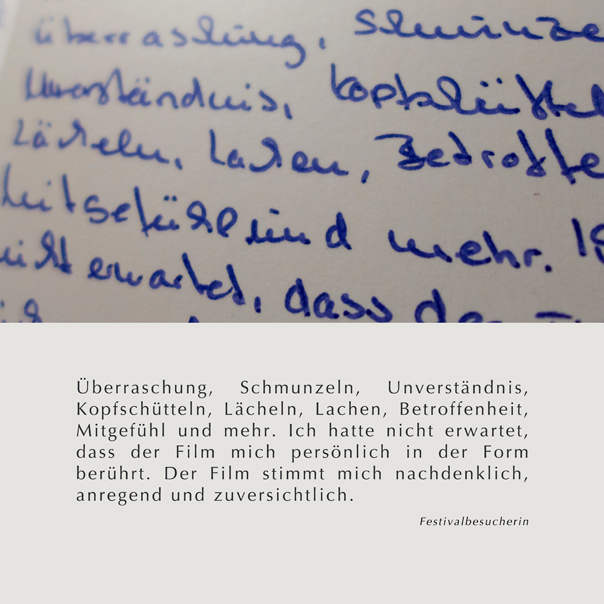 überraschung, Schmunze
Unverständnis, Kopfschüttel
Lächeln, Lachen, Betroffe
heit, Mitgefühl und mehr. Ic
nicht erwartet, dass der
Überraschung, Schmunzeln, Unverständnis,
Kopfschütteln, Lächeln, Lachen, Betroffenheit,
Mitgefühl und mehr. Ich hatte nicht erwartet,
dass der Film mich persönlich in der Form
berührt. Der Film stimmt mich nachdenklich,
anregend und zuversichtlich.
Festivalbesucherin